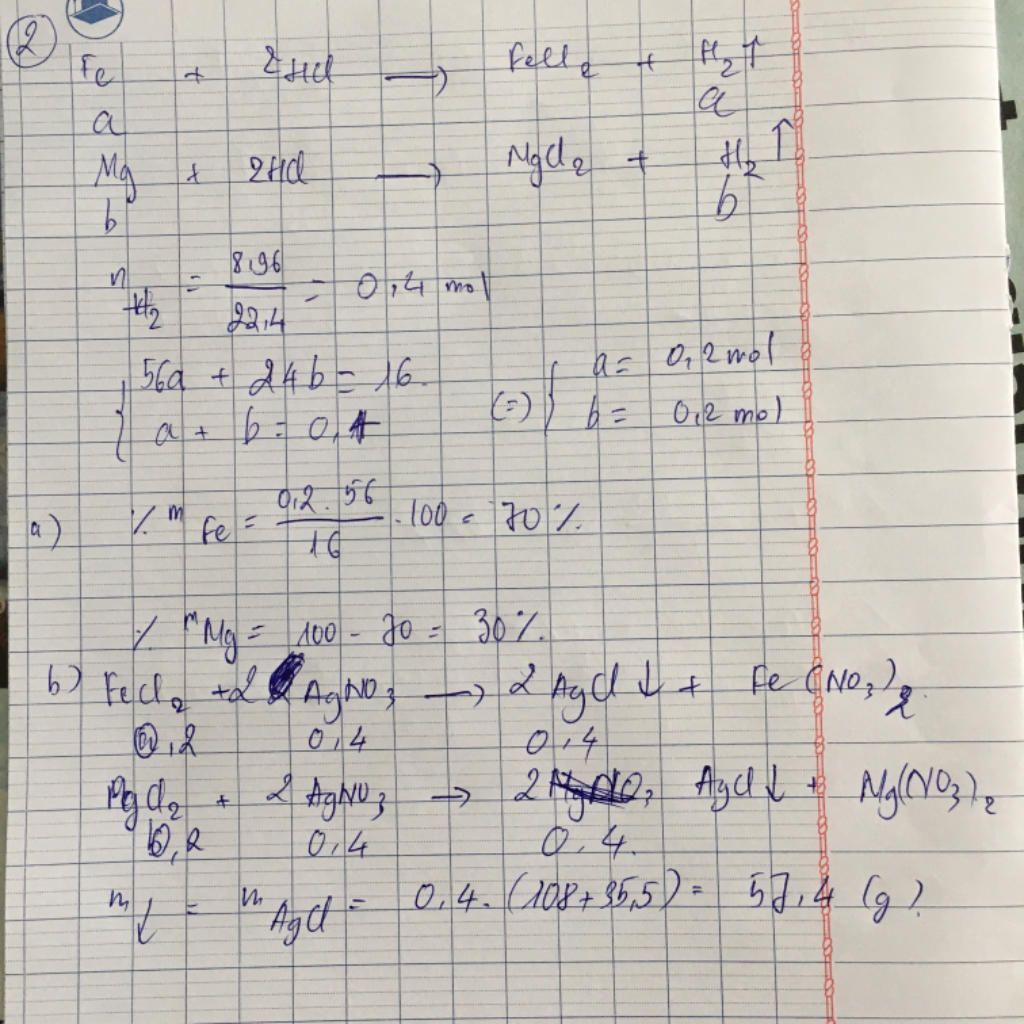 2
Fe + 2HCl → FeCl2 + H2↑
a a
Mg + 2HCl → MgCl2 + H2↑
b b
nH2 = 8,96/22,4 = 0,4 mol
{ 56a + 24b = 16 (=) { a = 0,2 mol
{ a + b = 0,4 { b = 0,2 mol
a) % mFe = 0,2.56/16 .100 = 70%
% mMg = 100 - 70 = 30%
b) FeCl2 + 2 AgNO3 → 2 AgCl↓ + Fe(NO3)2
0,2 0,4 0,4
MgCl2 + 2 AgNO3 → 2 AgCl↓ + Mg(NO3)2
0,2 0,4 0,4.
m↓ = mAgCl = 0,4.(108+35,5) = 57,4 (g).